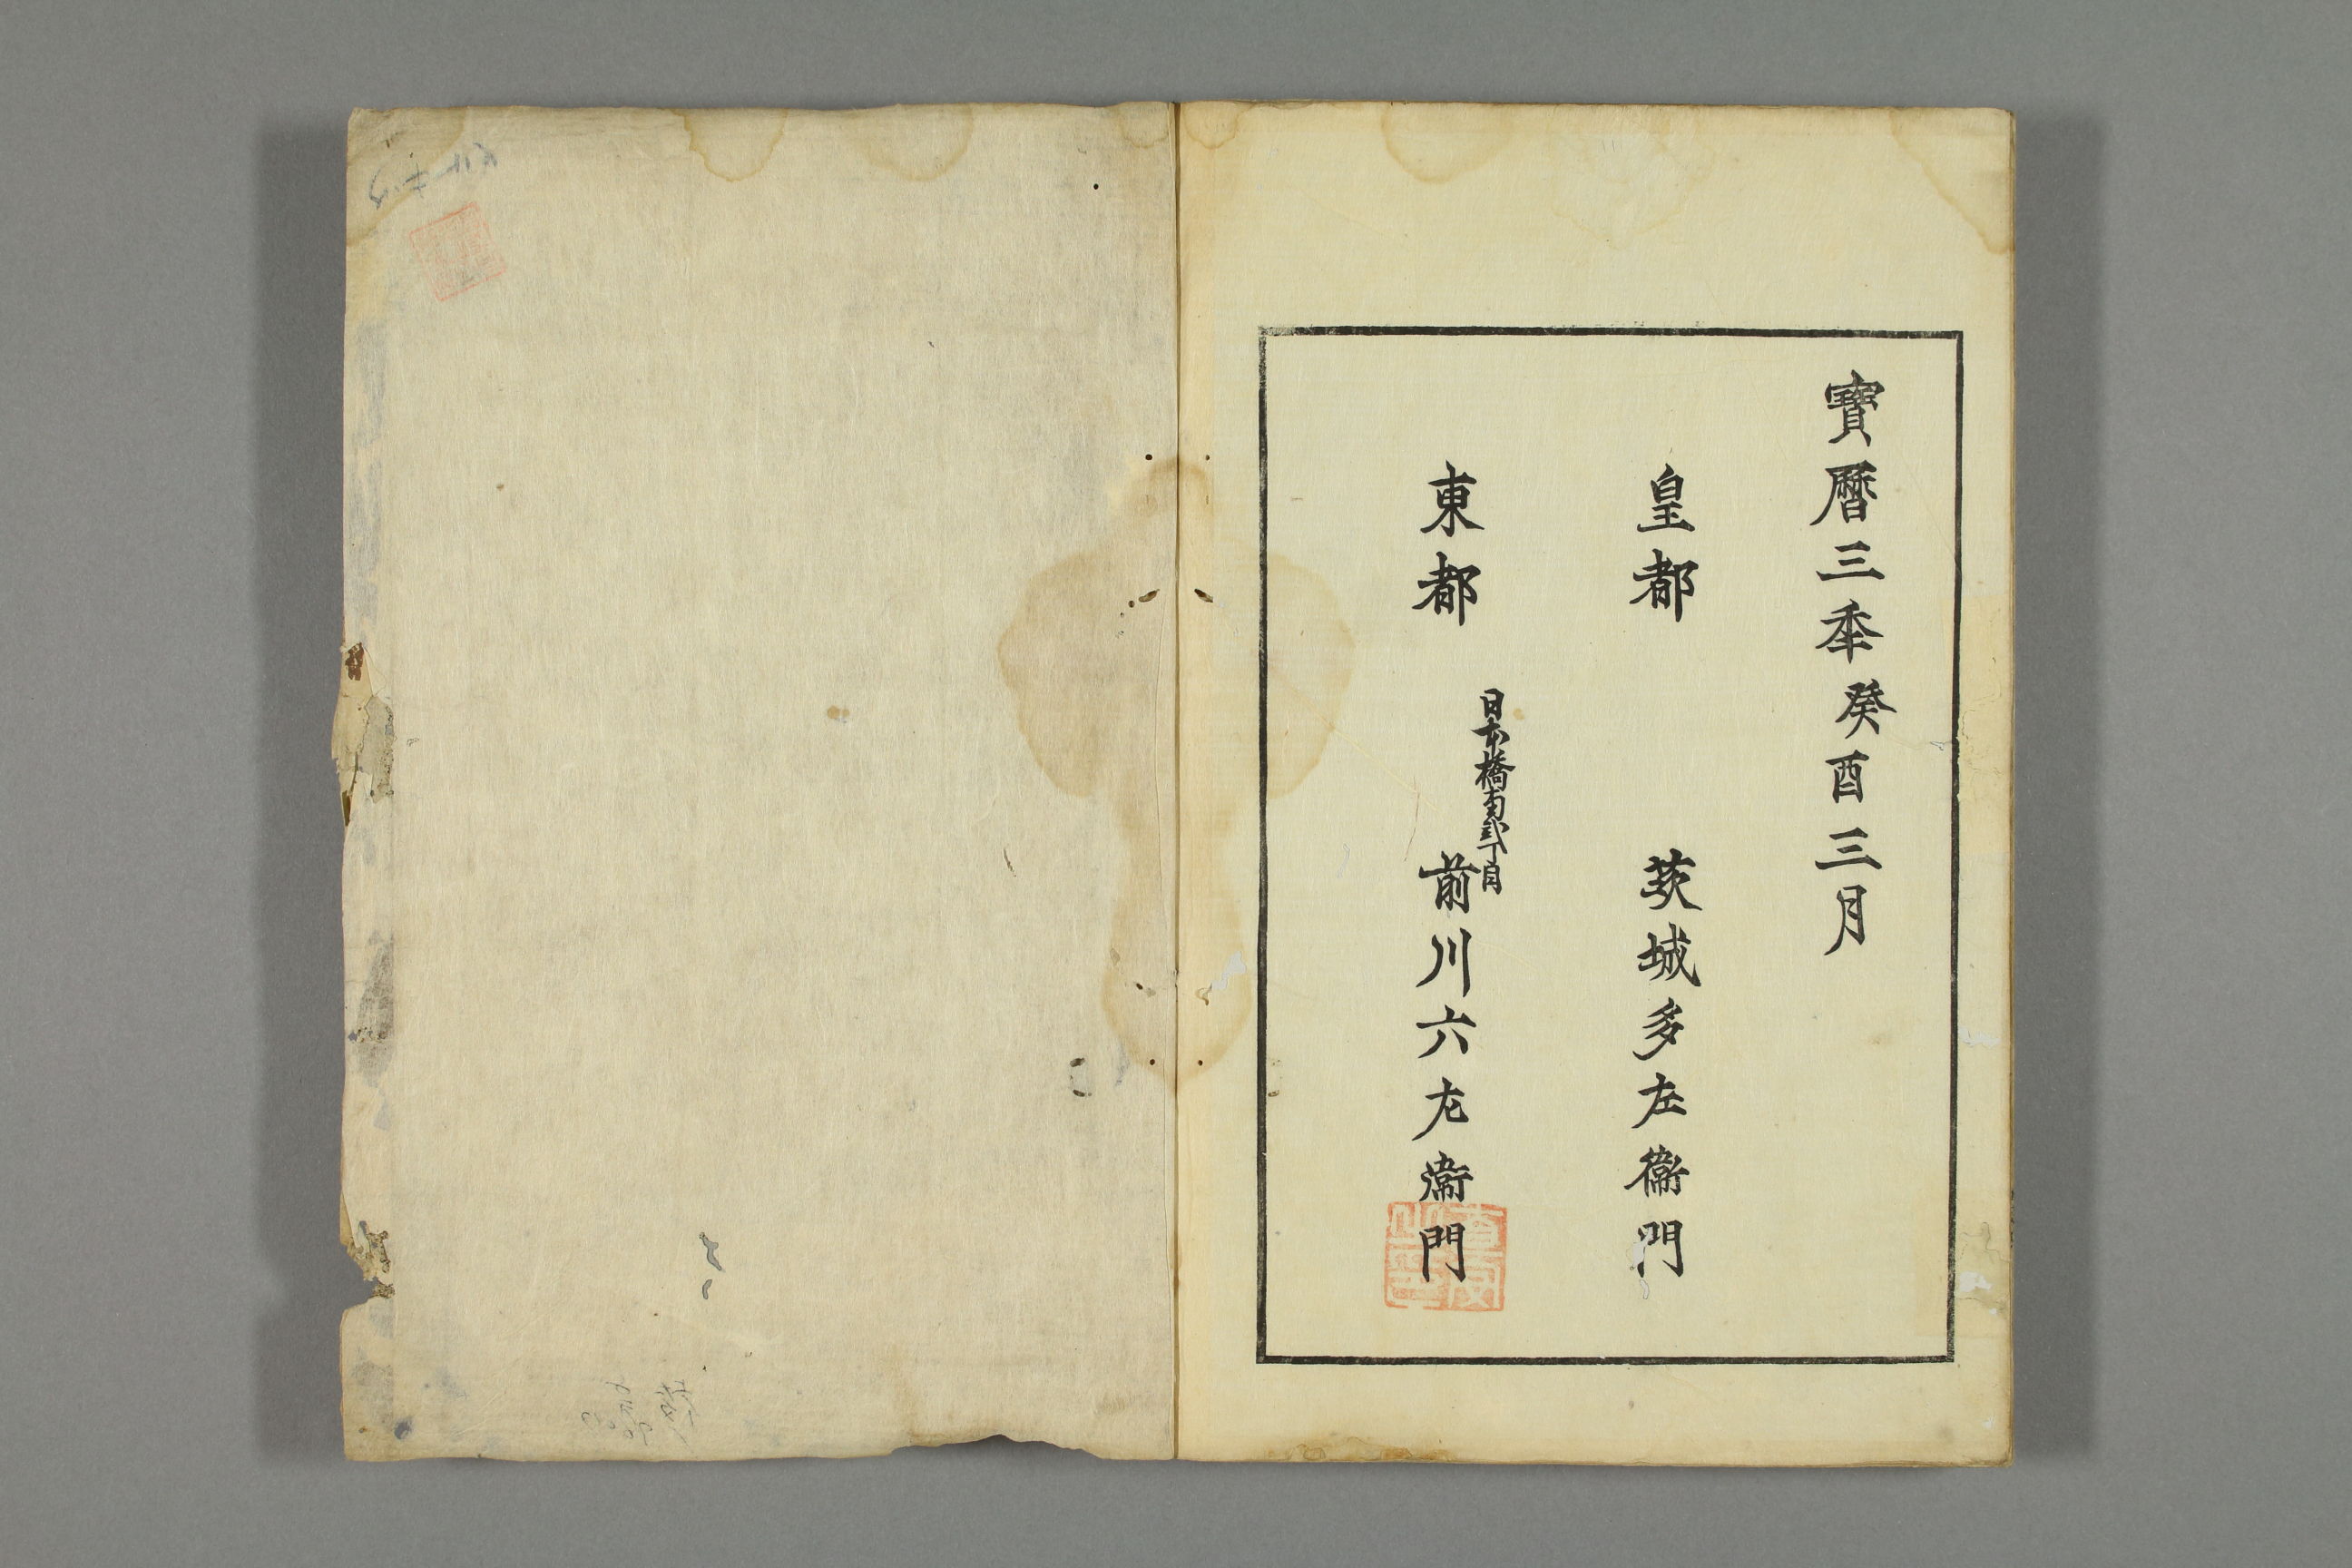 寶曆三秊癸酉三月
皇都 茨城多左衞門
東都 日本橋南貳丁目 前川六左衞門